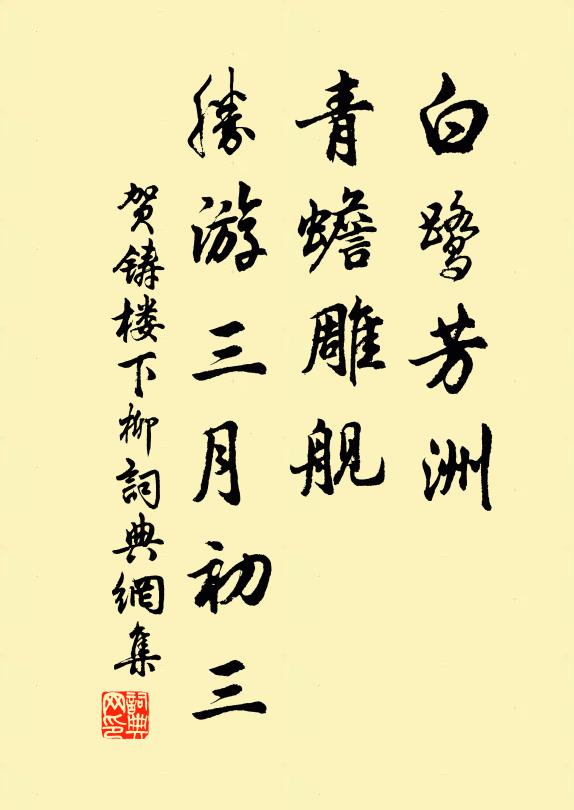 白鹭芳洲
青蟾雕舰
勝游三月初三
贺鑄楼下柳詞典網集
詞典网印